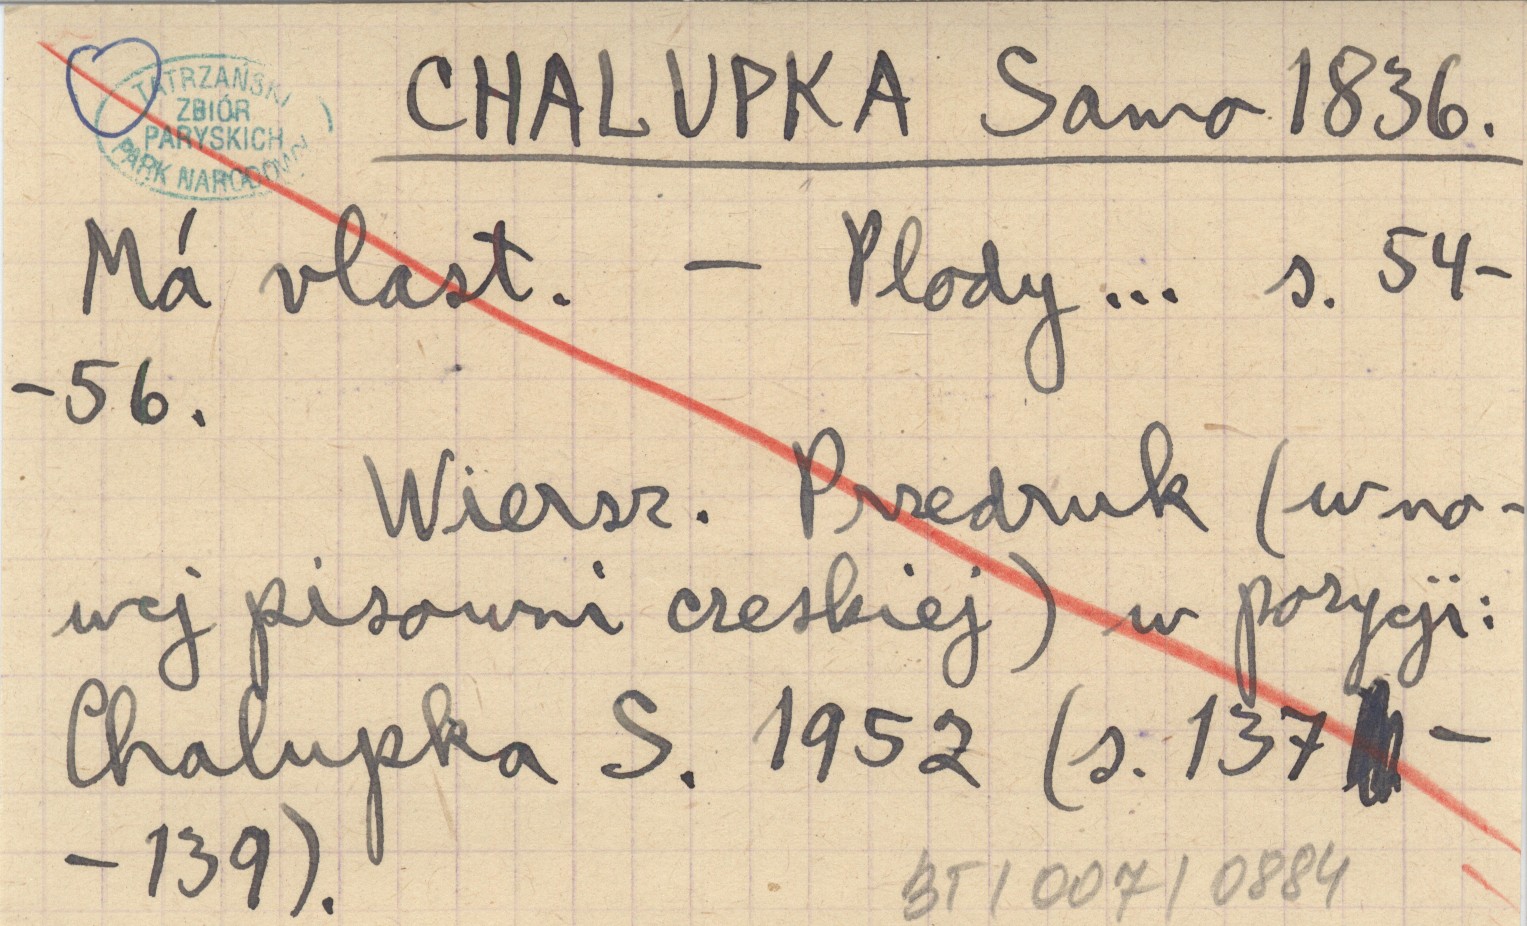 TATRZAŃSKI
ZBIÓR
PARYSKICH
PARK NARODOWY
CHALUPKA Samo 1836.
Má vlast. - Plody... s. 54-
-56.
Wiersz. Przedruk (w no-
wej pisowni czeskiej) w pozycji:
Chalupka S. 1952 (s. 137 -
-139).
BT/007/0884